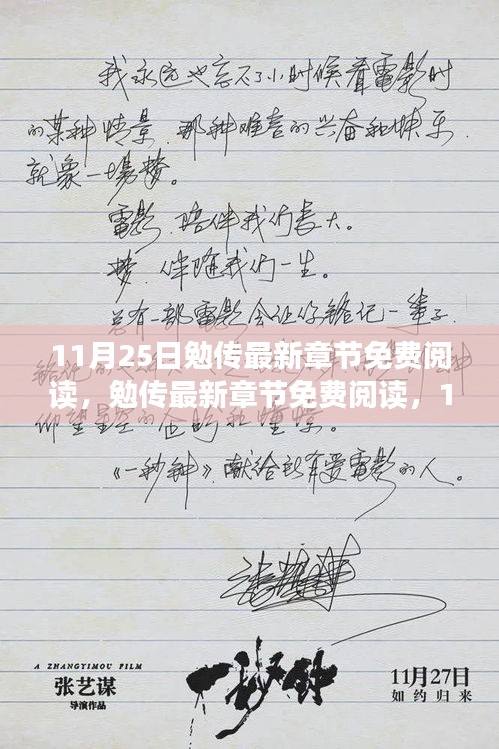 我永远也忘不了小时候看電影时
的某种情景，那种难言的兴奋和快乐，
就象一場梦。
電影，陪伴我们長大。
梦，伴随我们一生。
总有一部電影会让你铭记一辈子，
11月25日勉传最新章节免费阅
读，勉传最新章节免费阅读，1
仰望星空的
《一秒钟》献给所有爱電影的人。
张艺谋
A ZHANGYIMOU FILM
张艺谋
导演作品
一秒钟
11月27日
如约归来